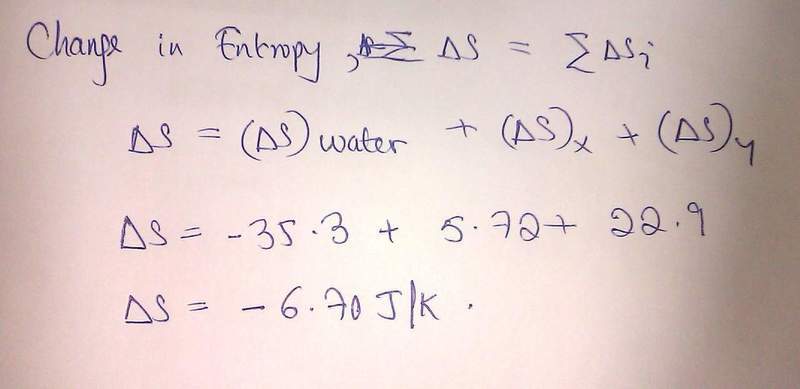 Change in Entropy, ΔS = ΣΔSi
ΔS = (ΔS)water + (ΔS)x + (ΔS)y
ΔS = -35.3 + 5.72 + 22.9
ΔS = -6.70 J/K.